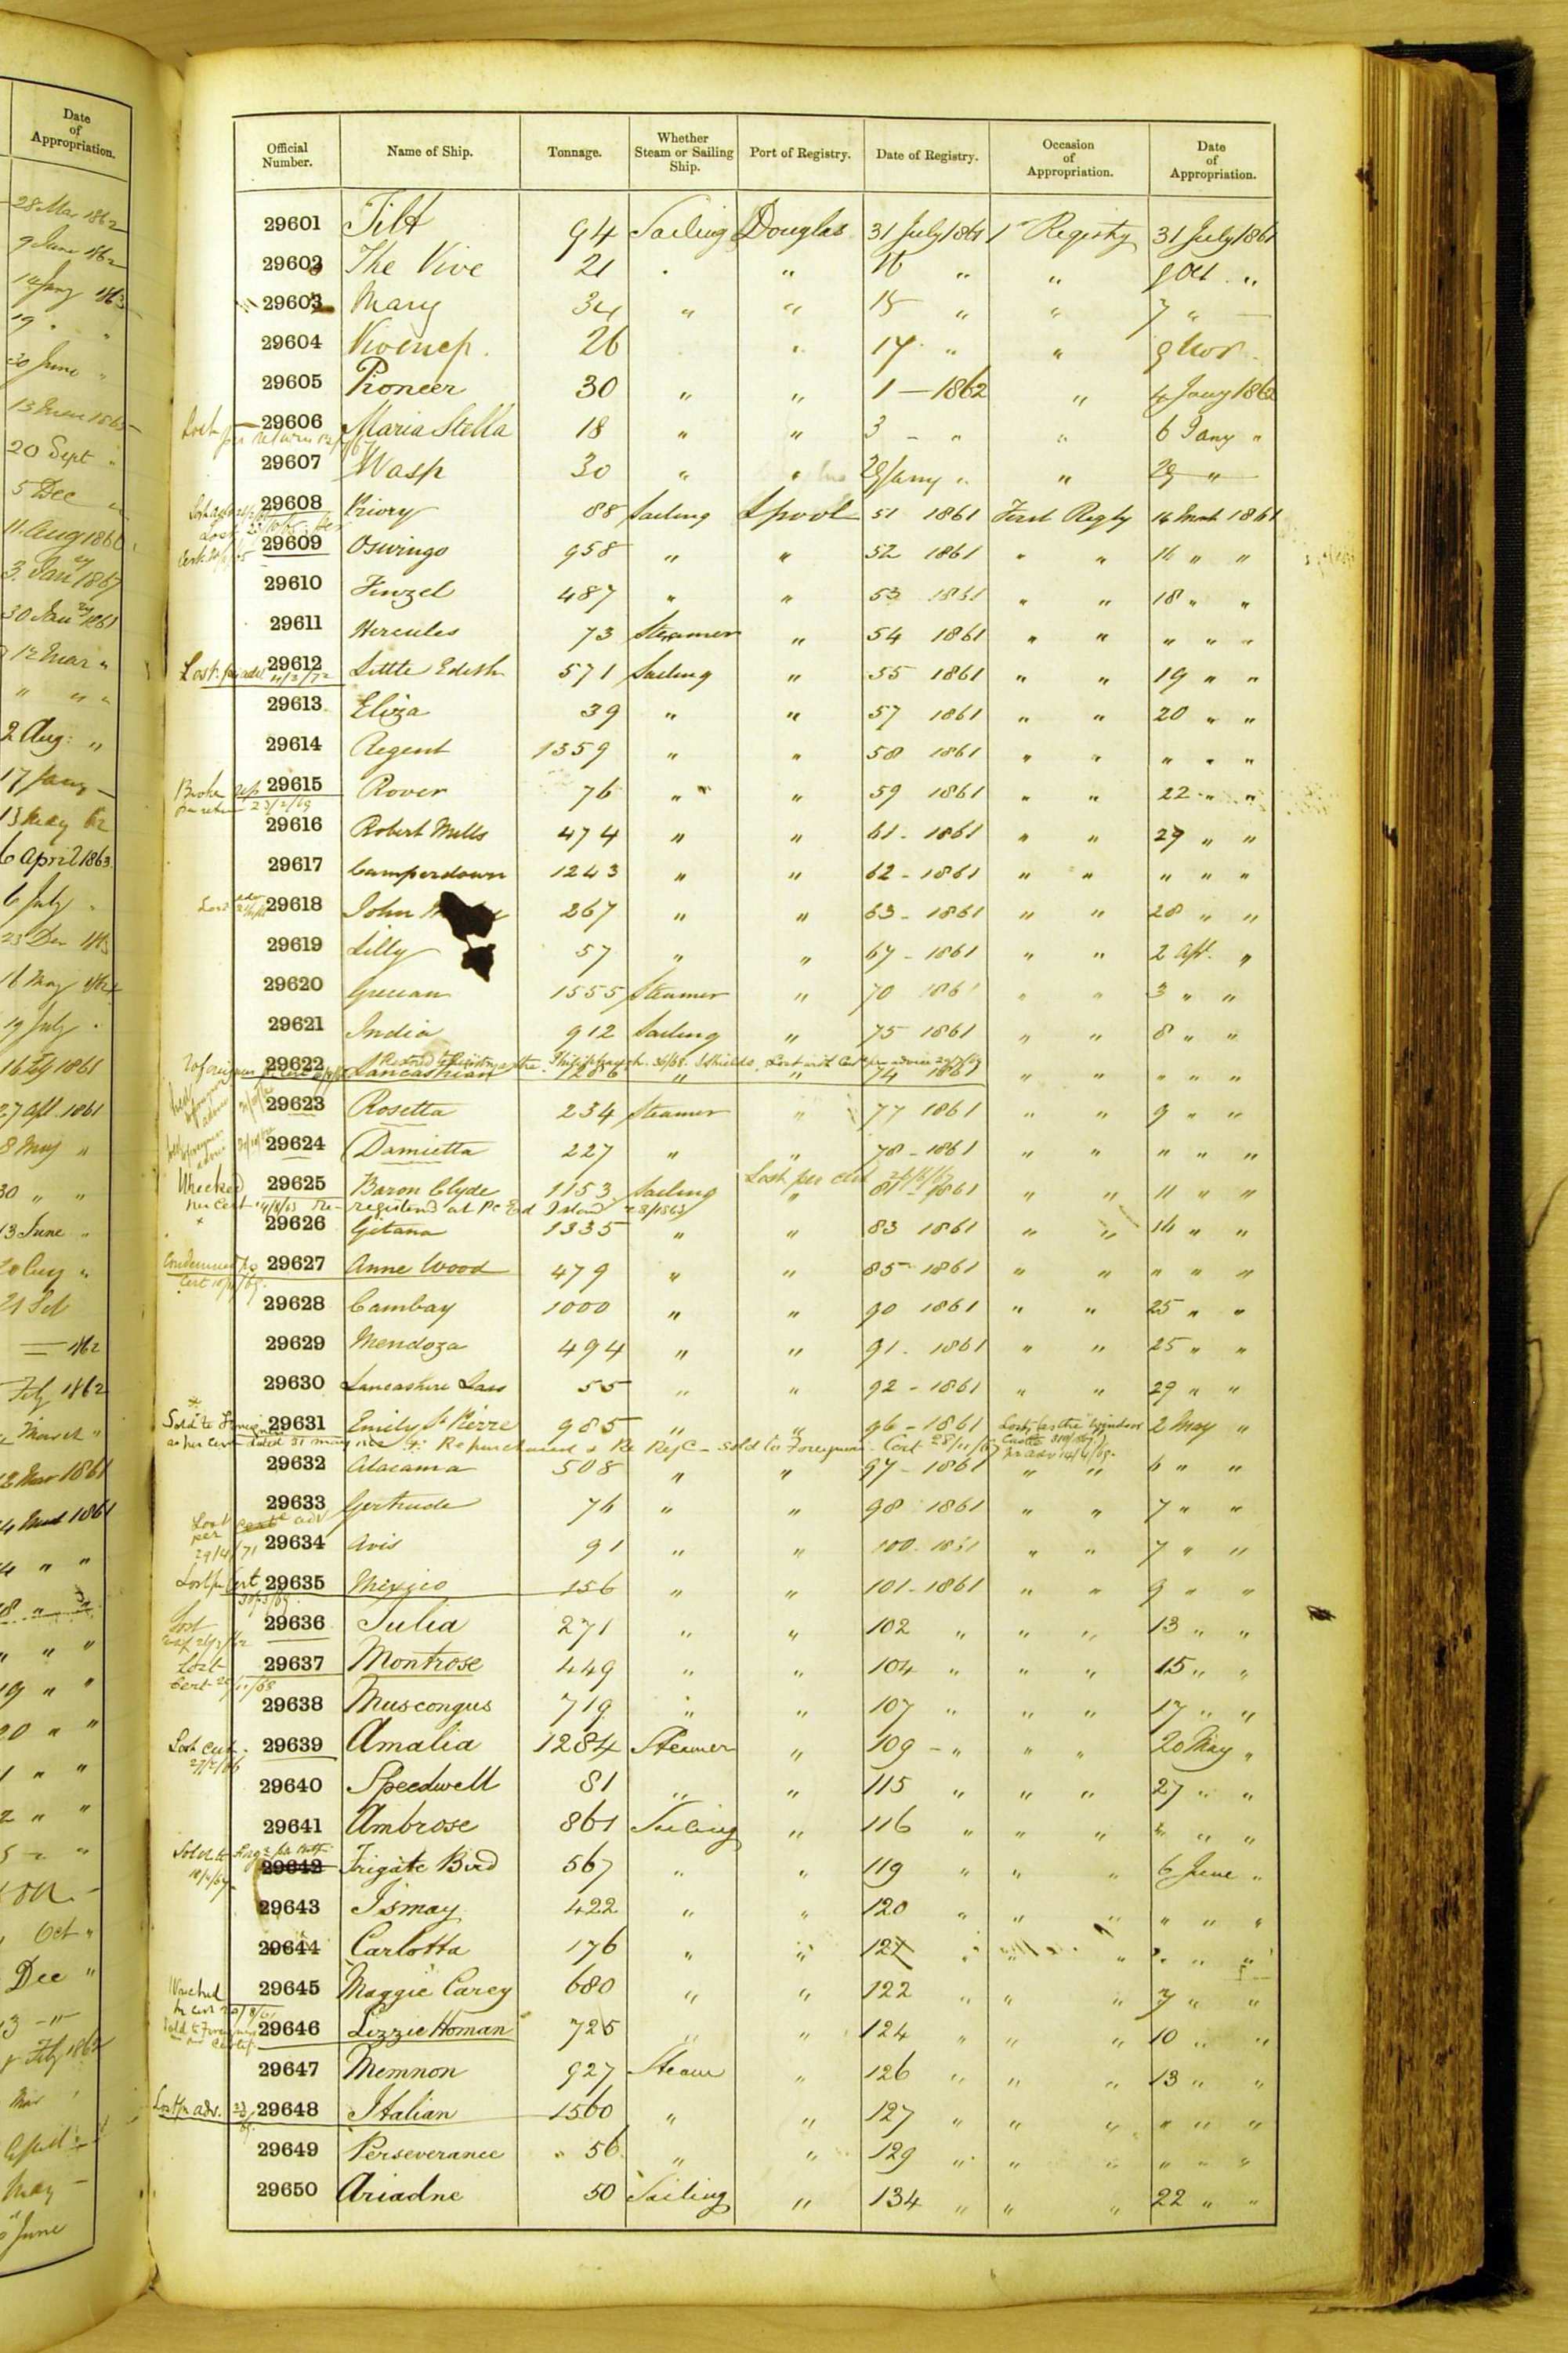 Date of Appropriation.
28 Mar 1862
9 June 1862
19 " "
30 June "
20 Sept "
5 Dec "
11. Aug 1866
3. Jany 1867
30 Jany 1861
12 Mar "
" " "
2 Aug: "
17 Jany —
13 May 62
6 April 1863
6 July "
16 May
19 July "
16 Fby 1861
27 Apl. 1861
8 May "
30 " "
13 June "
— 1862
Feby 1862
" March "
12 Mar 1861
Oct "
Dec "
Feby 1862
Mar '
May —
June
Official Number. Name of Ship. Tonnage. Whether Steam or Sailing Ship. Port of Registry. Date of Registry. Occasion of Appropriation. Date of Appropriation.
29601 Tilt 94 Sailing Douglas 31 July 1861 1st Registry 31 July 1861
29602 The Vive 21 " " 16 " " 9 Oct "
29603 Mary 34 " " 18 " " 7 " —
29604 26 " 17 " " 9 Nov
29605 Pioneer 30 " " 1 — 1862 " 4 Jany 1862
Lost per return 29606 Maria Stella 18 " " 3 - " " 6 Jany "
29607 Wasp 30 " " 29 Jany " " 29 "
29608 Priory 88 Sailing Lpool 51 1861 First Regty 16 March 1861
29609 Oswingo 958 " " 52 1861 " " 16 " "
29610 Finzel 487 " " 53 1861 " " 18 " "
29611 Hercules 73 Steamer " 54 1861 " " " " "
Lost per adv 11/3/72 29612 Little Edith 571 Sailing " 55 1861 " " 19 " "
29613 Eliza 39 " " 57 1861 " " 20 " "
29614 Regent 1359 " " 58 1861 " " " " "
Broken up per return 23/2/69 29615 Rover 76 " " 59 1861 " " 22 " "
29616 Robert Mills 474 " " 61 - 1861 " " 27 " "
29617 Camperdown 1243 " " 62 - 1861 " " " " "
Lost 29618 John 267 " " 63 - 1861 " " 28 " "
29619 Lilly 57 " " 67 - 1861 " " 2 Apl. "
29620 Grecian 1555 Steamer " 70 1861 " " 3 " "
29621 India 912 Sailing " 75 1861 " " 8 " "
To foreigners Restored to Registry as the Philiphaugh 36/68 S. Shields Lost with Cert per advice
29622 Lancashian 1286 " " 74 1861 " " " " "
29623 Rosetta 234 Steamer " 77 1861 " " 9 " "
29624 Damietta 227 " " 78 - 1861 " " " " "
Lost per cert
Wrecked 29625 Baron Clyde 1153 Sailing " 81 - 1861 " " 11 " "
per cert Re-registered at Pce Ed Island 28/1863
29626 Gitana 1335 " " 83 1861 " " 16 " "
Condemned 29627 Anne Wood 479 " " 85 1861 " " " " "
29628 Cambay 1000 " " 90 1861 " " 25 " "
29629 Mendoza 494 " " 91 - 1861 " " 25 " "
29630 Lancashire Lass 55 " " 92 - 1861 " " 29 " "
Sold to Foreigners 29631 Emily St Pierre 985 " " 96 - 1861 Lost, as the Windsor Castle 2 May "
as per Cert dated 31 May Repurchased & Re Regd - Sold to Foreigners - Cert 28/11/67 pr adv 14/4/85
29632 Atacama 508 " " 97 - 1861 " " 6 " "
29633 Gertrude 76 " " 98 1861 " " 7 " "
Lost per adv 29/4/71 29634 Avis 91 " " 100 - 1861 " " 7 " "
Lost per Cert 29635 Mexico 156 " " 101 - 1861 " " 9 " "
Lost 29636 Julia 271 " " 102 " " " 13 " "
Lost Cert 29637 Montrose 449 " " 104 " " " 15 " "
29638 Muscongus 719 " " 107 " " " 17 " "
Lost cert. 27/2/66 29639 Amalia 1284 Steamer " 109 - " " " 20 May "
29640 Speedwell 81 " " 115 " " " 27 " "
29641 Ambrose 861 Sailing " 116 " " " " " "
Sold to 29642 Frigate Bird 567 " " 119 " " " 6 June "
29643 Ismay 422 " " 120 " " " " " "
29644 Carlotta 176 " " 121 " " " " " "
Wrecked 29645 Maggie Carey 680 " " 122 " " " 7 " "
Sold to Foreigners 29646 Lizzie Homan 725 " " 124 " " " 10 " "
29647 Memnon 927 Steam " 126 " " " 13 " "
Lost per adv. 29648 Italian 1560 " " 127 " " " " " "
29649 Perseverance 56 " " 129 " " " " " "
29650 Ariadne 50 Sailing " 134 " " " 22 " "